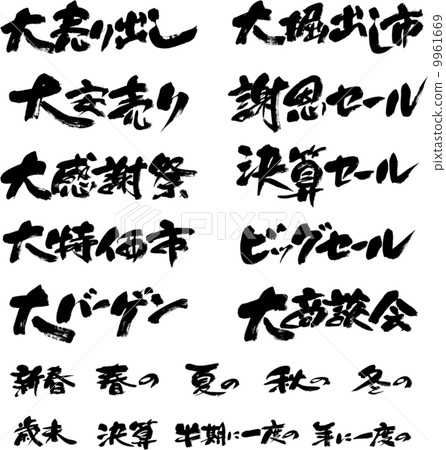 大売り出し 大堀出し市
大安売り 謝恩セール
大感謝祭 決算セール
大特価市 ビッグセール
大バーゲン 大商談会
新春 春の 夏の 秋の 冬の
歳末 決算 半期に一度の 年に一度の
PIXTA
pixtastock.com - 9961669